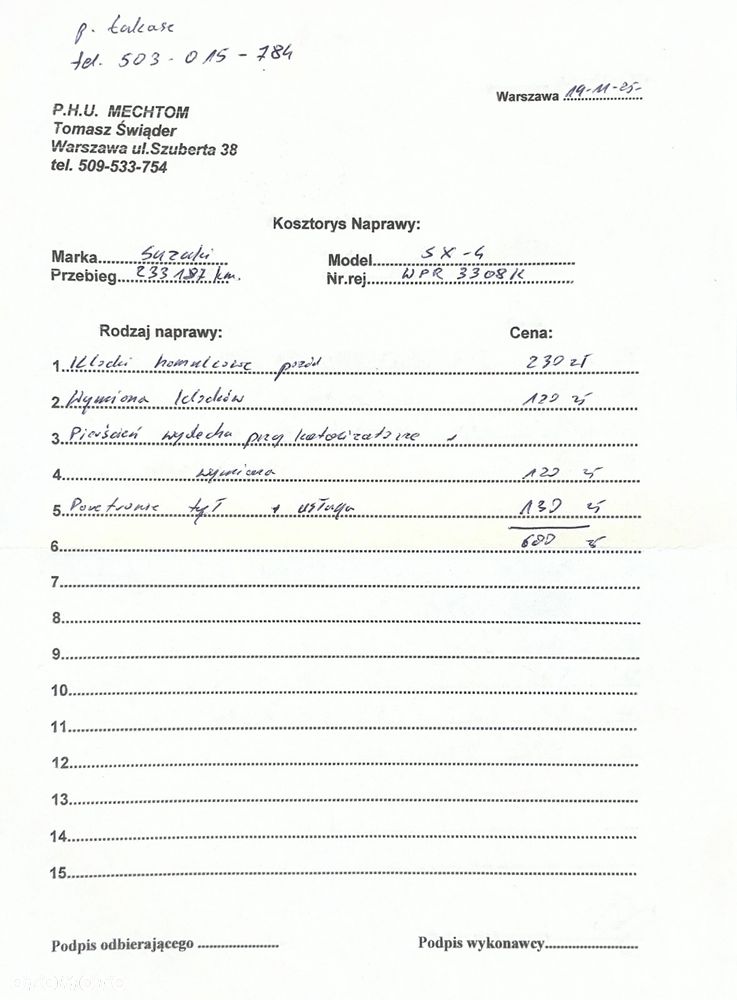 p. Łukasz
tel. 503-015-784
Warszawa 19-11-25-
P.H.U. MECHTOM
Tomasz Świąder
Warszawa ul.Szuberta 38
tel. 509-533-754
Kosztorys Naprawy:
Marka Suzuki Model SX-4
Przebieg 233187 km. Nr.rej WPR 3308K
Rodzaj naprawy: Cena:
1 Klocki hamulcowe przód 230 zł
2 Wymiana klocków 120 zł
3 Pierścień wydechu przy katalizatorze +
4 wymiana 120 zł
5 tył + usługa 130 zł
6 600 zł
7
8
9
10
11
12
13
14
15
Podpis odbierającego Podpis wykonawcy